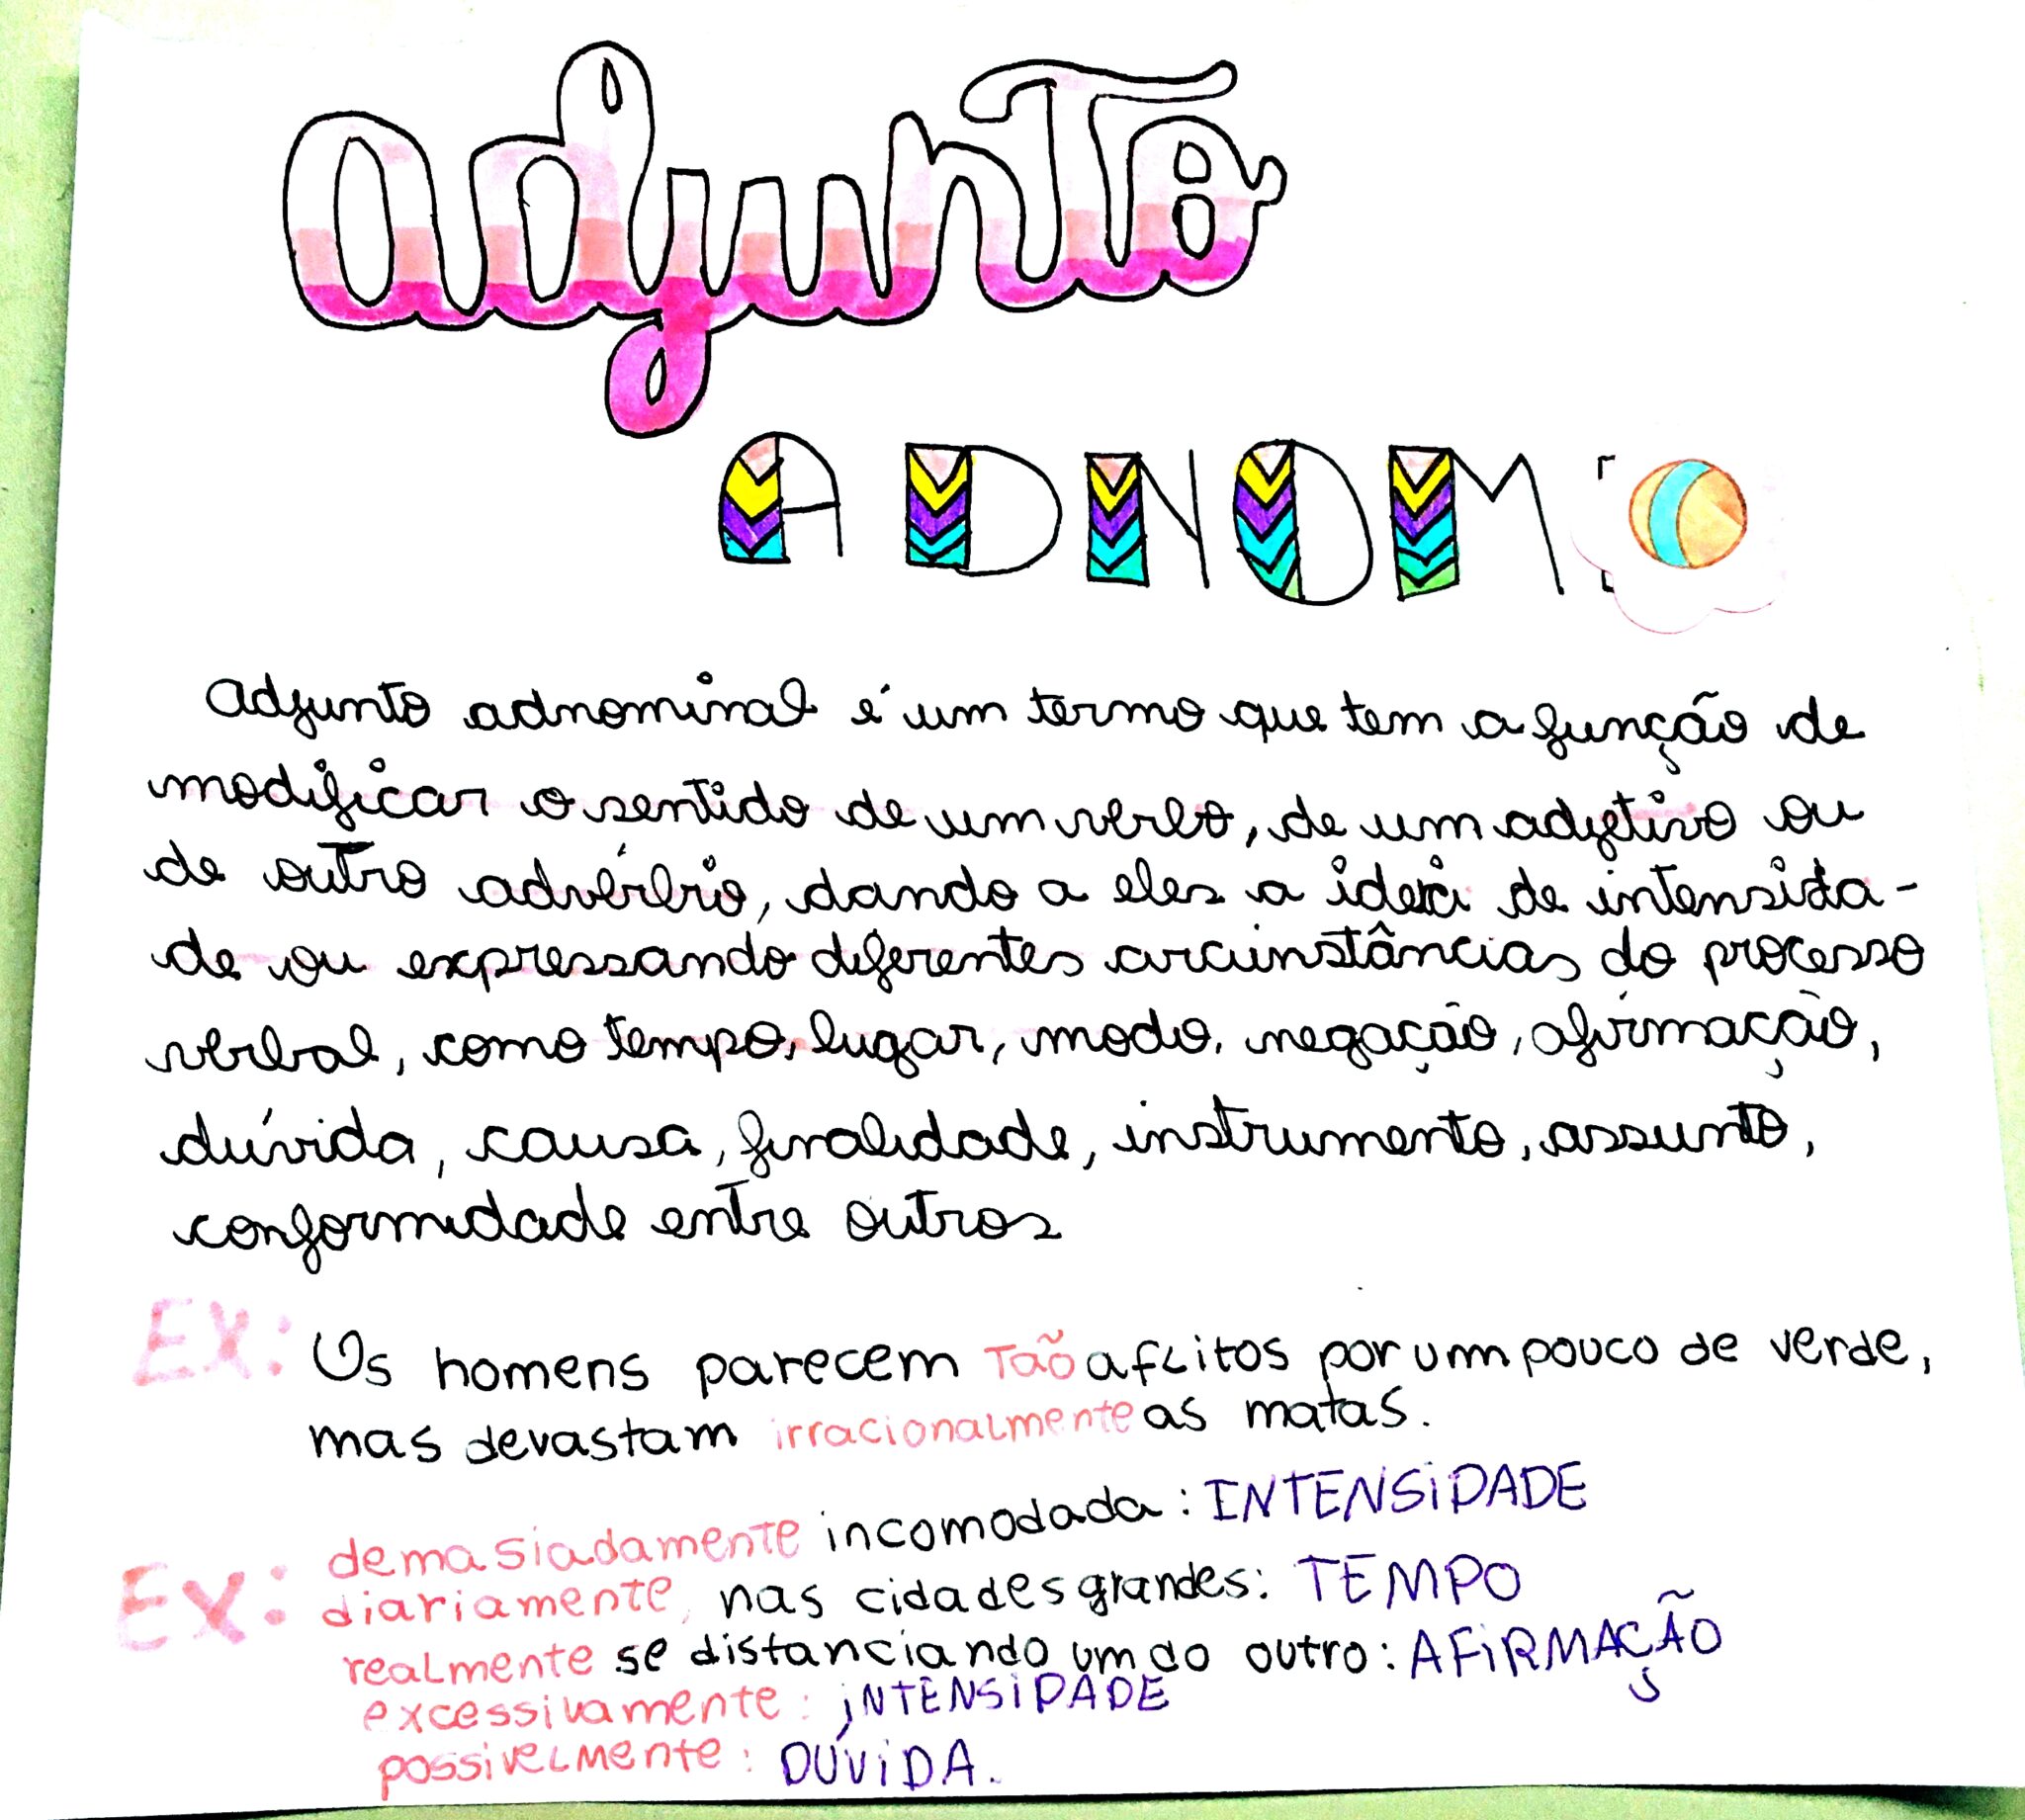 adjunto
ADNOM
Adjunto adnominal é um termo que tem a função de
modificar o sentido de um verbo, de um adjetivo ou
de outro advérbio, dando a eles a ideia de intensida-
de ou expressando diferentes circunstâncias do processo
verbal, como tempo, lugar, modo, negação, afirmação,
dúvida, causa, finalidade, instrumento, assunto,
conformidade entre outros
EX: Os homens parecem Tão aflitos por um pouco de verde,
mas devastam irracionalmente as matas.
EX: demasiadamente incomodada: INTENSIDADE
diariamente, nas cidades grandes: TEMPO
realmente se distanciando um do outro: AFIRMAÇÃO
excessivamente: INTENSIDADE
possivelmente: DÚVIDA.